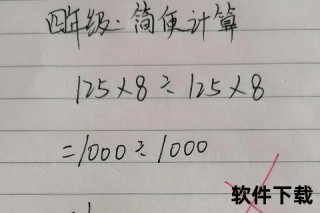 四年级：简便计算
125×8÷125×8
=1000÷1000
软件下载